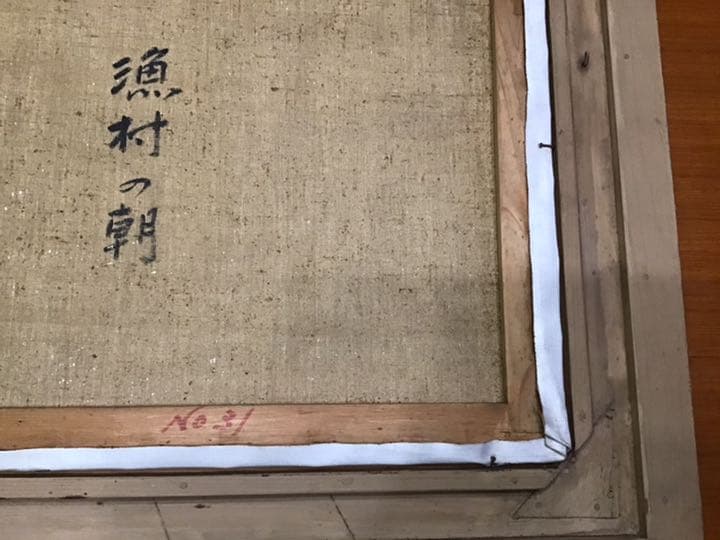 漁村の朝
No.31